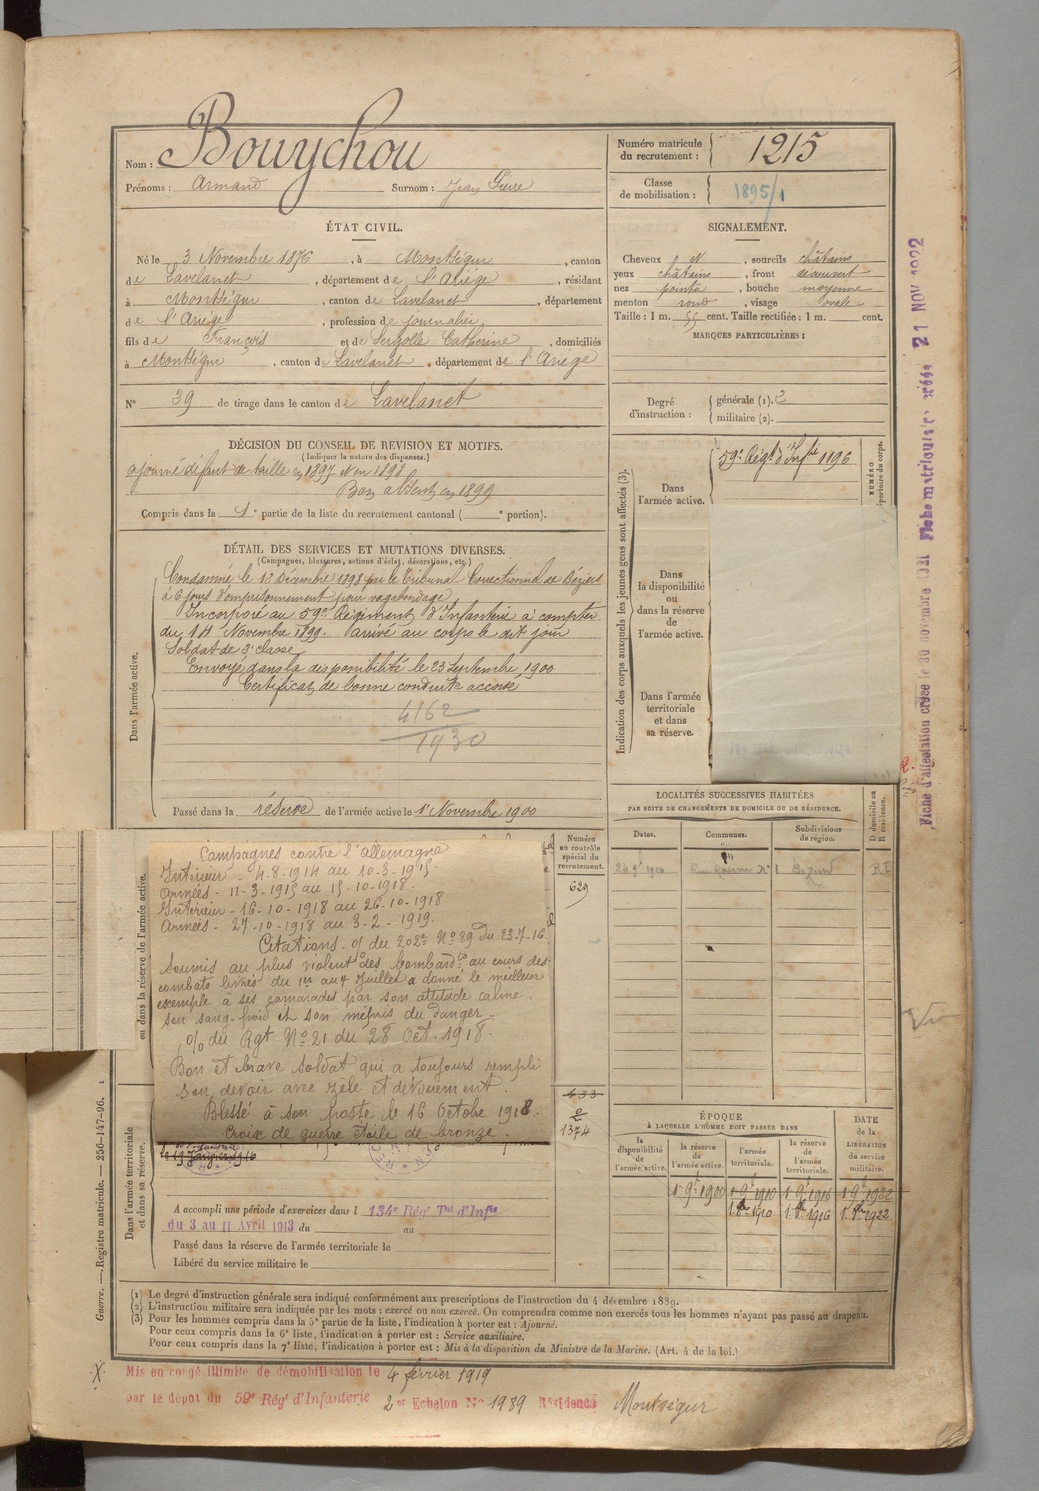 Nom : Bouychou
Prénoms : Armand Surnom : Jean Pierre
Numéro matricule du recrutement : 1215
Classe de mobilisation : 1895/1
ÉTAT CIVIL.
Né le 3 Novembre 1876, à Montségur, canton
de Lavelanet, département de l'Ariège, résidant
à Montségur, canton de Lavelanet, département
de l'Ariège, profession de journalier
fils de François et de Sergolle Catherine, domiciliés
à Montségur, canton de Lavelanet, département de l'Ariège
N° 39 de tirage dans le canton de Lavelanet
SIGNALEMENT.
Cheveux et, sourcils châtains
yeux châtains, front découvert
nez pointu, bouche moyenne
menton rond, visage ovale
Taille : 1 m. 55 cent. Taille rectifiée : 1 m. cent.
MARQUES PARTICULIÈRES :
Degré d'instruction : générale (1). 2
militaire (2).
DÉCISION DU CONSEIL DE REVISION ET MOTIFS.
(Indiquer la nature des dispenses.)
ajourné défaut de taille en 1897 Non 1898
Bon absent en 1899
Compris dans la 1e partie de la liste du recrutement cantonal ( e portion).
DÉTAIL DES SERVICES ET MUTATIONS DIVERSES.
(Campagnes, blessures, actions d'éclat, décorations, etc.)
Dans l'armée active.
Condamné le 12 Décembre 1898 par le Tribunal Correctionnel de Béziers
à 6 jours d'emprisonnement pour vagabondage
Incorporé au 59e Régiment d'Infanterie à compter
du 14 Novembre 1899. Arrivé au corps le dit jour
Soldat de 2e classe
Envoyé dans la disponibilité le 23 Septembre 1900
Certificat de bonne conduite accordé
4162
1930
Passé dans la réserve de l'armée active le 1er Novembre 1900
Indication des corps auxquels les jeunes gens sont affectés (3).
Dans l'armée active.
59e Régt d'Infie 1196
NUMÉRO
répertoire du corps.
Dans la disponibilité ou dans la réserve de l'armée active.
Dans l'armée territoriale et dans sa réserve.
LOCALITÉS SUCCESSIVES HABITÉES
PAR SUITE DE CHANGEMENTS DE DOMICILE OU DE RÉSIDENCE.
Dates. Communes. Subdivisions de région. D domicile ou R résidence.
Numéro au contrôle spécial du recrutement.
629
ou dans la réserve de l'armée active.
Campagnes contre l'allemagne
Intérieur - 4-8-1914 au 10-3-1915.
Armées - 11-3-1915 au 15-10-1918.
Intérieur - 16-10-1918 au 26-10-1918
Armées - 27-10-1918 au 3-2-1919.
Citations - o/ du 202e N° 29 du 23-7-16.
Soumis au plus violent des bombardts au cours des
combats livrés du 1er au 7 Juillet a donné le meilleur
exemple à ses camarades par son attitude calme
son sang-froid et son mépris du danger -
o/o du Rgt N° 21 du 28 Oct. 1918.
Bon et brave soldat qui a toujours rempli
son devoir avec zèle et dévouement.
Blessé à son poste le 16 Octobre 1918.
Croix de guerre étoile de bronze.
633
2
1374
Dans l'armée territoriale et dans sa réserve.
A accompli une période d'exercices dans l 134e Régt Tal d'Infie
du 3 au 11 Avril 1913 du au
Passé dans la réserve de l'armée territoriale le
Libéré du service militaire le
ÉPOQUE
A LAQUELLE L'HOMME DOIT PASSER DANS
la disponibilité de l'armée active. la réserve de l'armée active. l'armée territoriale. la réserve de l'armée territoriale. DATE de la LIBÉRATION du service militaire.
1 9e 1900 1 9e 1910 1 9e 1916 1 9e 1922
1 8bre 1910 1 8bre 1916 1 8bre 1922
(1) Le degré d'instruction générale sera indiqué conformément aux prescriptions de l'instruction du 4 décembre 1889.
(2) L'instruction militaire sera indiquée par les mots : exercé ou non exercé. On comprendra comme non exercés tous les hommes n'ayant pas passé au drapeau.
(3) Pour les hommes compris dans la 5e partie de la liste, l'indication à porter est : Ajourné.
Pour ceux compris dans la 6e liste, l'indication à porter est : Service auxiliaire.
Pour ceux compris dans la 7e liste, l'indication à porter est : Mis à la disposition du Ministre de la Marine. (Art. 4 de la loi.)
Mis en congé illimité de démobilisation le 4 février 1919
par le dépôt du 59e Régt d'Infanterie 2e Echelon N° 1989 Résidence Montségur
Guerre. — Registre matricule. — 256-147-96.
Fiche d'affectation créée le 30 novembre 1921 Fiche matriculaire créée 21 NOV 1922